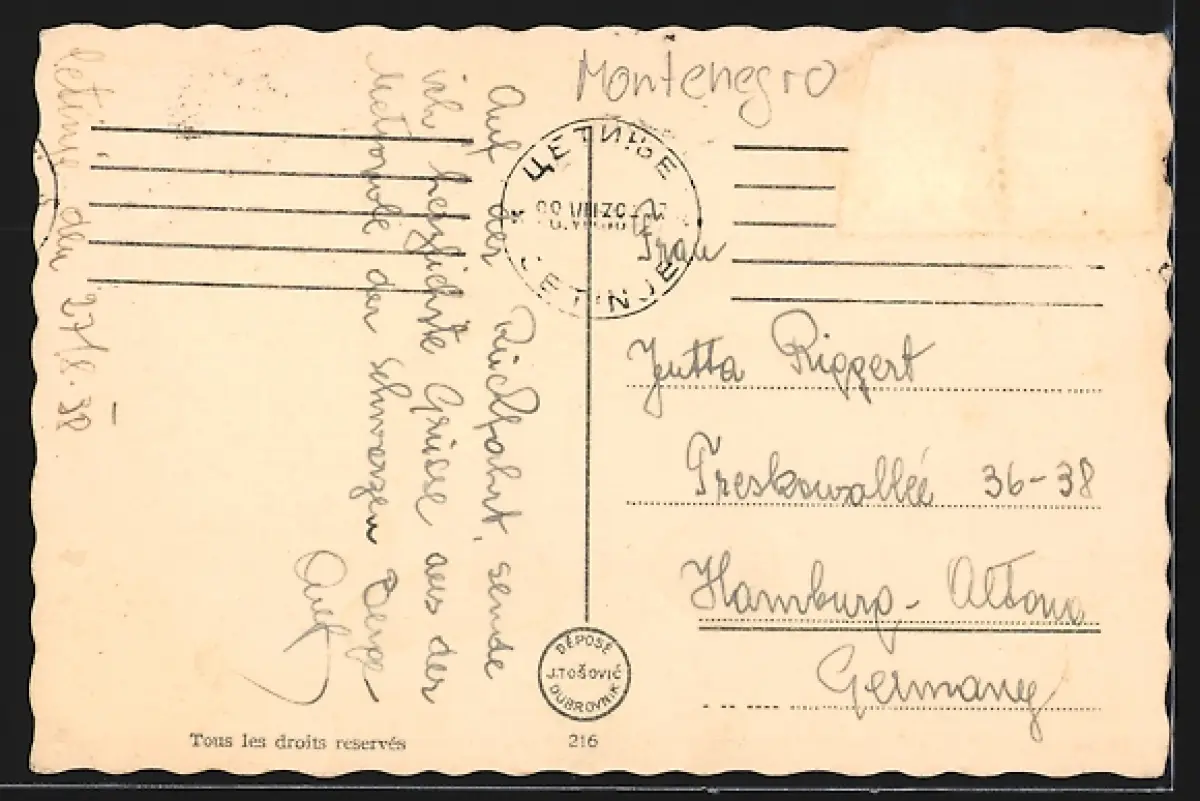 Montenegro
ЦЕТИЊЕ
CETINJE
Cetinje den 27/8.38
Auf der Rückfahrt, sende
ich herzlichste Grüsse aus der
Metropole der schwarzen Berge
Frau
Jutta Riggert
Treskowallee 36-38
Hamburg - Altona
Germany
DÉPOSÉ
J.TOŠOVIĆ
DUBROVNIK
Tous les droits reservés
216